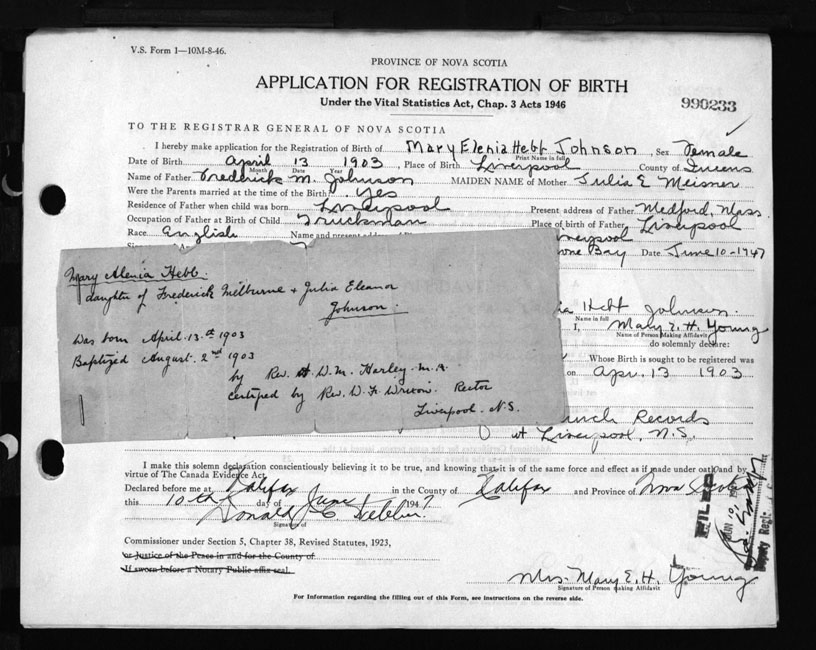 V.S. Form 1—10M-8-46.
PROVINCE OF NOVA SCOTIA
APPLICATION FOR REGISTRATION OF BIRTH
Under the Vital Statistics Act, Chap. 3 Acts 1946
990233
TO THE REGISTRAR GENERAL OF NOVA SCOTIA
I hereby make application for the Registration of Birth of Mary Elenia Hebb Johnson, Sex Female
Print Name in full
Date of Birth April 13 1903, Place of Birth Liverpool County of Queens
Month Date Year
Name of Father Frederick M. Johnson MAIDEN NAME of Mother Julia E Meisner
Were the Parents married at the time of the Birth? Yes
Residence of Father when child was born Liverpool Present address of Father Medford, Mass.
Occupation of Father at Birth of Child Truckman Place of birth of Father Liverpool
Race English Name and present address Liverpool
Bay Date June 10-1947
Mary Alenia Hebb.
daughter of Frederick Milburne & Julia Eleanor
Johnson.
Was born April 13th 1903
Baptized August 2nd 1903
by Rev. H. W. M. Harley M.A.
certified by Rev. W. F. Wrixon. Rector
Liverpool. N.S.
Hebb Johnson.
Name in full
I, Mary E. H. Young
Name of Person Making Affidavit
do solemnly declare:
Whose Birth is sought to be registered was
on Apr. 13 1903
Church Records
at Liverpool, N.S.
I make this solemn declaration conscientiously believing it to be true, and knowing that it is of the same force and effect as if made under oath and by
virtue of The Canada Evidence Act.
Declared before me at Halifax in the County of Halifax and Province of Nova Scotia
this 10th day of June 1947
Donald C.
Signature of
FILED
Commissioner under Section 5, Chapter 38, Revised Statutes, 1923,
or Justice of the Peace in and for the County of
If sworn before a Notary Public affix seal.
Mrs. Mary E. H. Young
Signature of Person Making Affidavit
For Information regarding the filling out of this Form, see instructions on the reverse side.